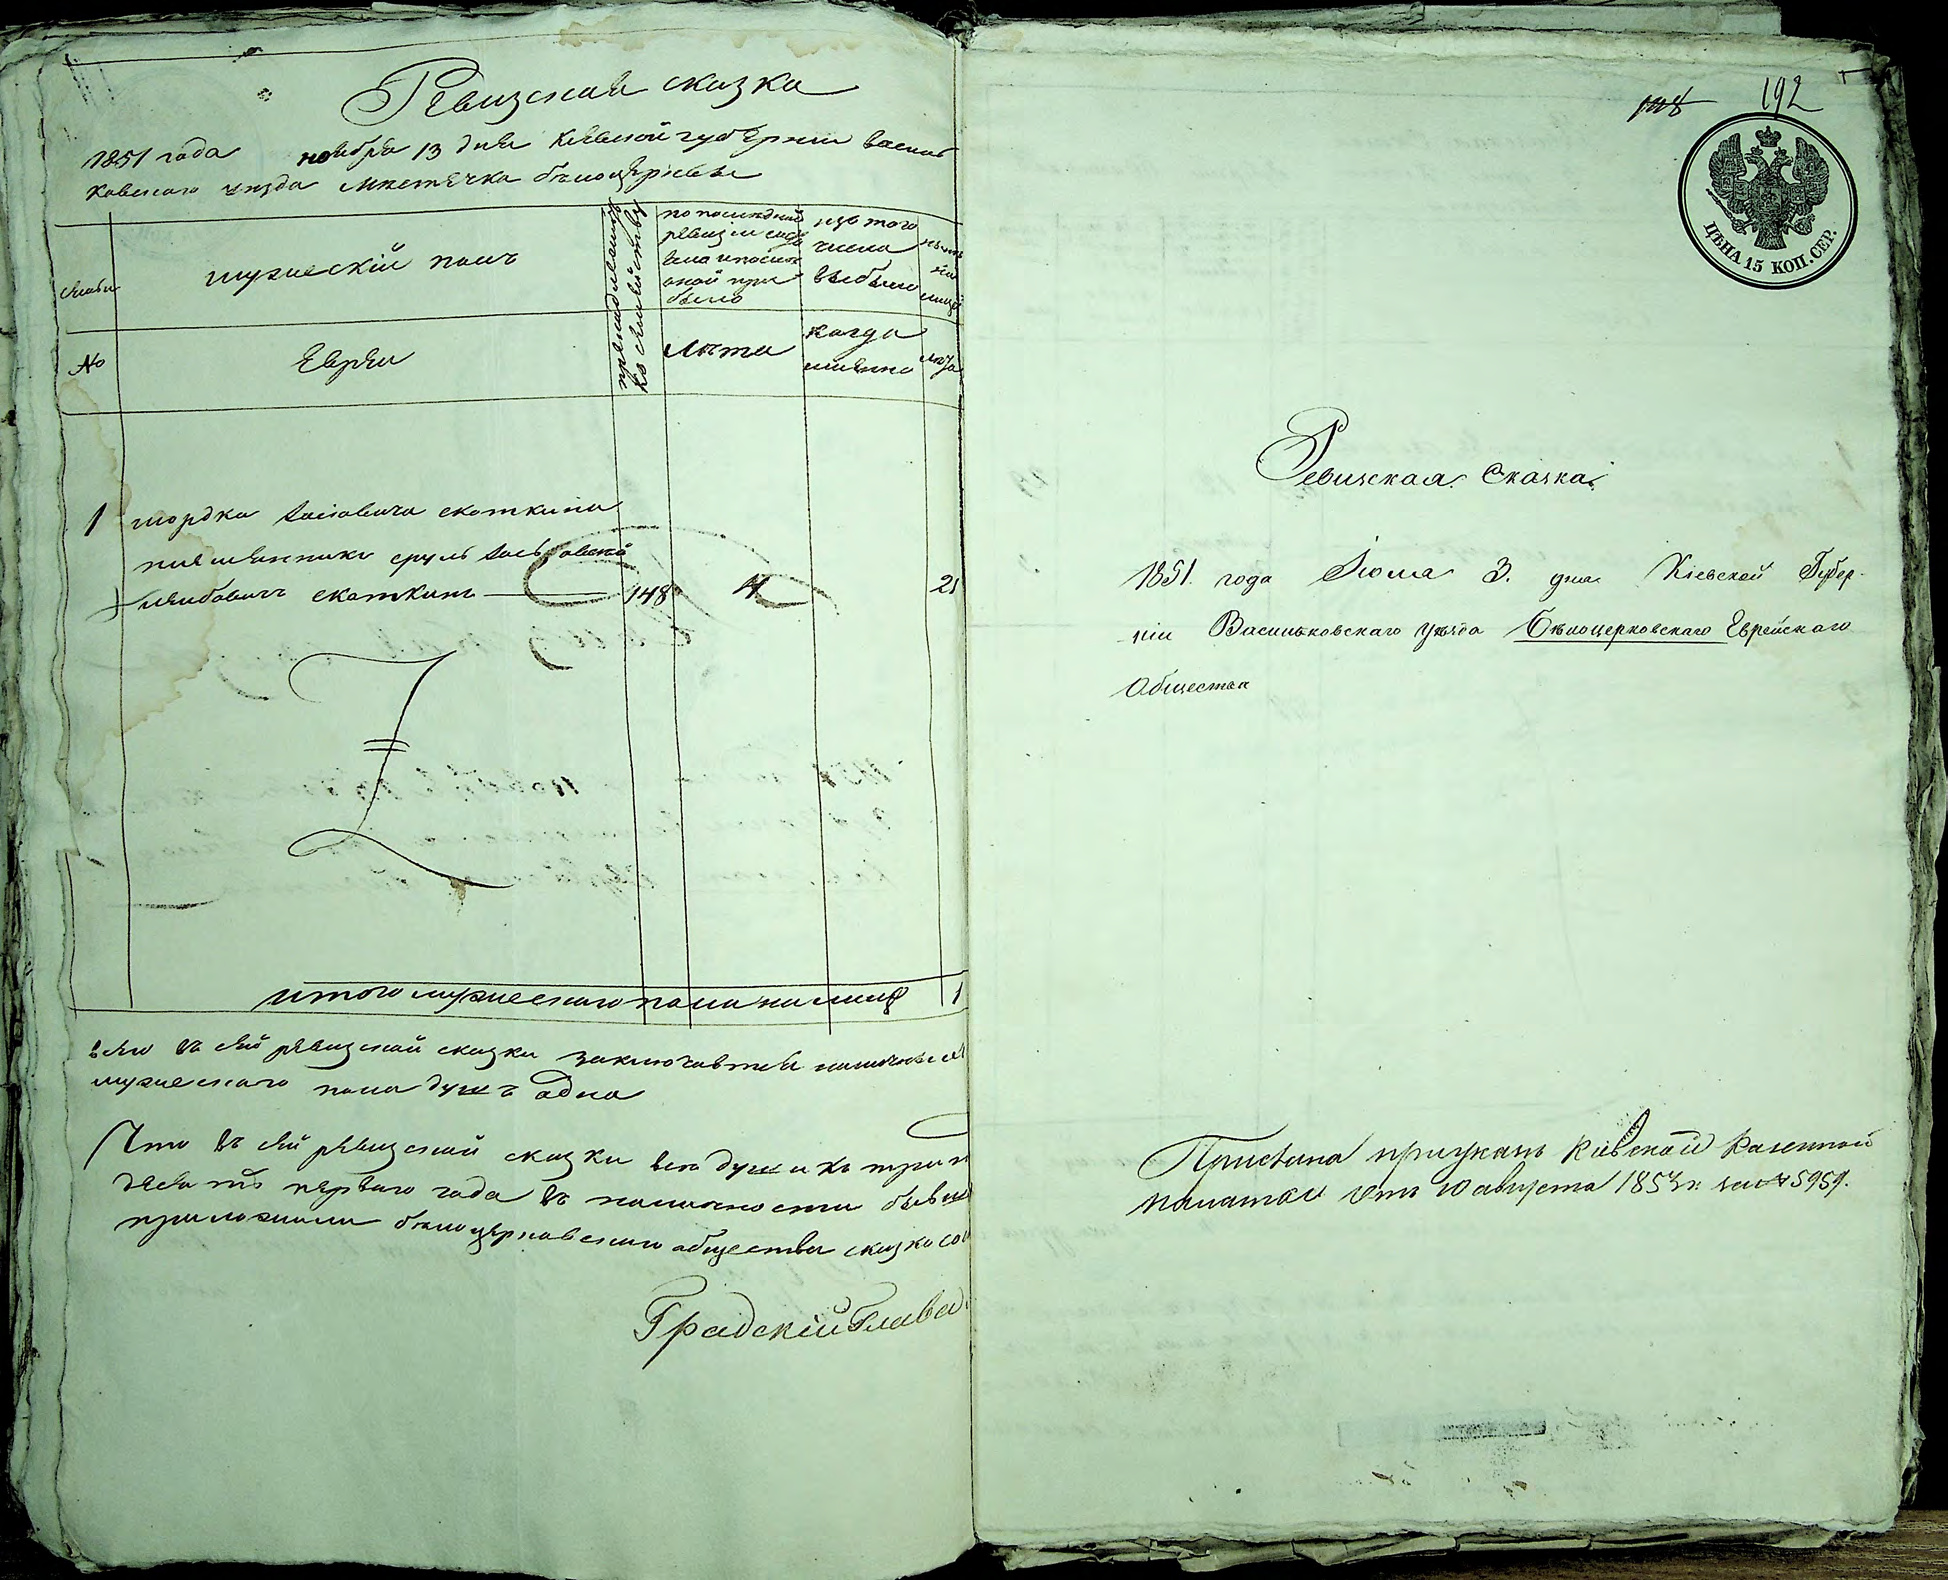 Ревизская сказка
1851 года ноября 13 дня Киевской губернии Василь
ковскаго уезда местечка белоцеркве
семьи
мужескій полъ
принадлежащ
къ семейству
по последней
ревизіи состо
яло и после
оной при
было
изъ того
числа
выбыло
ныне
на
лицо
№
Евреи
лета
когда
именно
лета
1 мордка скоткина
племянникъ сруль
лейбовичъ скоткинъ 148 4 21
итого мужескаго пола на лицо 1
всего въ сей ревизской сказки заключается наличных
мужескаго пола душъ одна
Что въ сей ревизской сказки все души къ три
десятъ перваго года въ наличности бывш
приложили белоцерковскаго общества сказка со
Градскій Глава
108 192
ЦѢНА 15 КОП. СЕР.
Ревизская Сказка
1851. года Іюля 3. дня Кіевской Губер-
ніи Васильковскаго Уѣзда Бѣлоцерковскаго Еврейскаго
Общества
Приказъ Кіевской Казенной
палаты отъ 10 августа 1853 г. за № 5959.